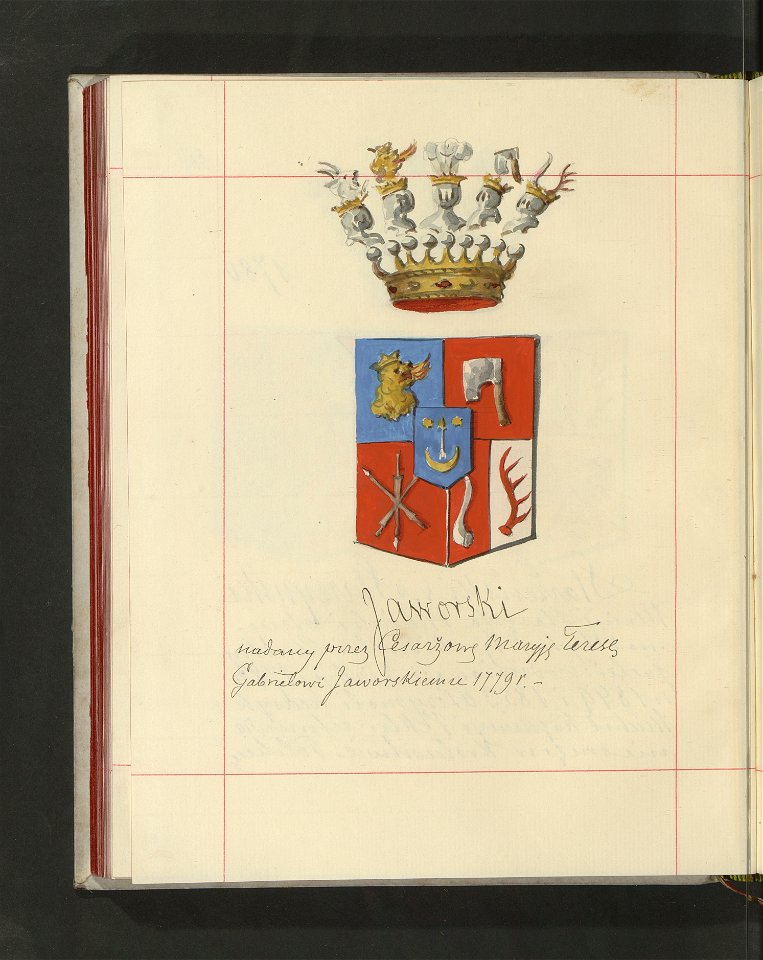 Jaworski
nadany przez Cesarzowę Maryję Teresę
Gabrielowi Jaworskiemu 1779 r. –